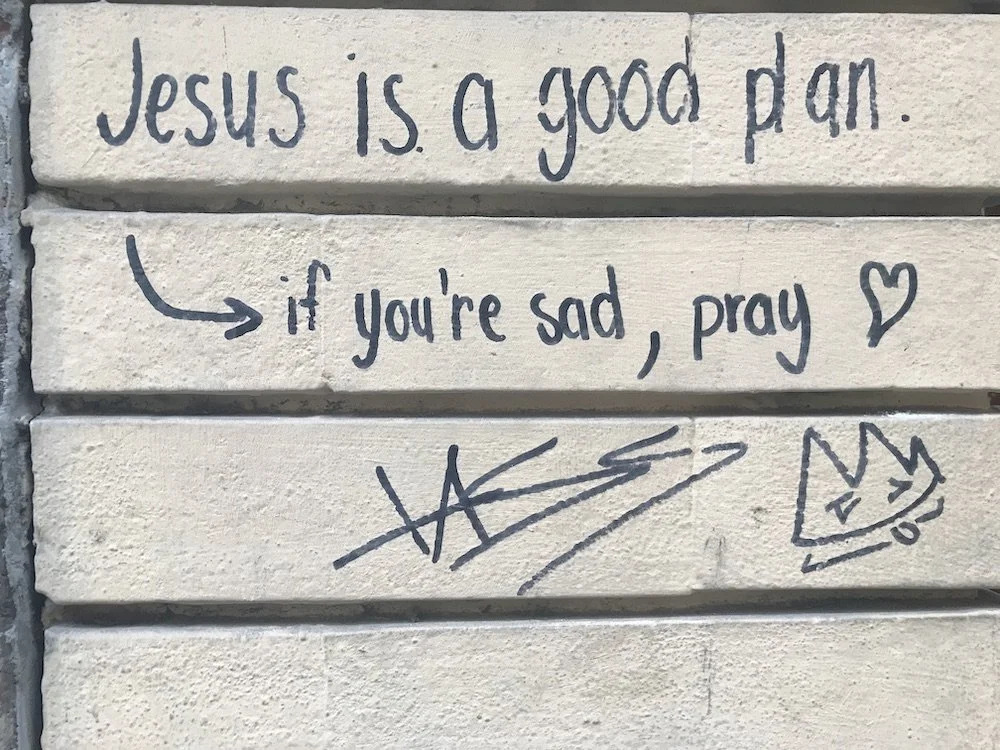 Jesus is a good plan.
if you're sad, pray